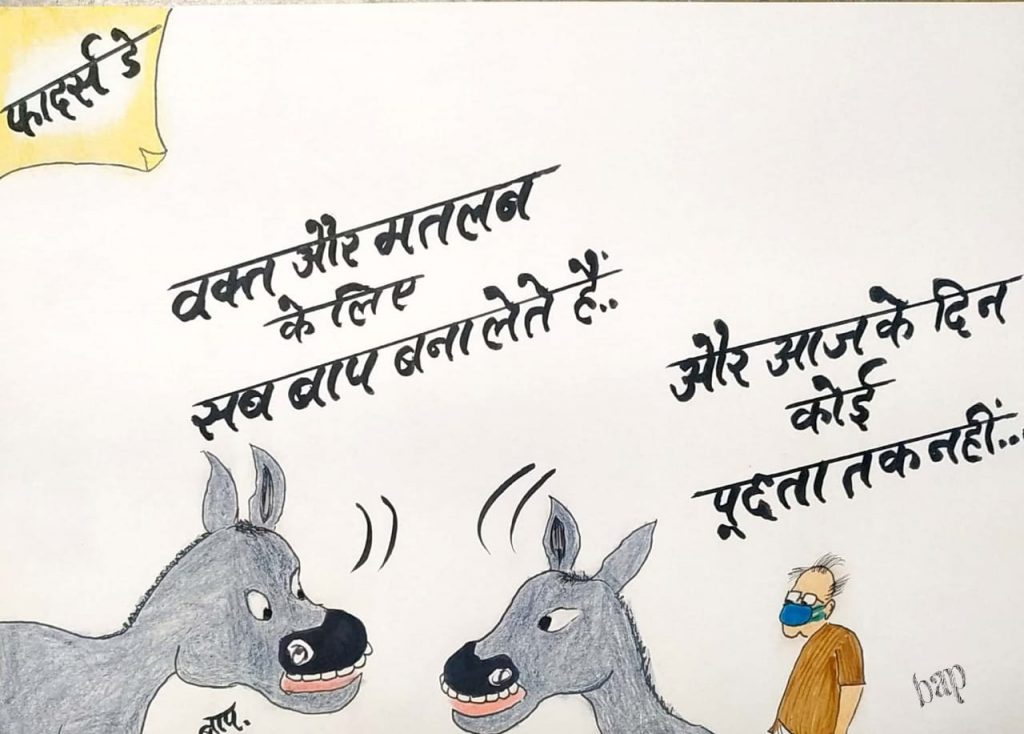 फादर्स डे
वक्त और मतलब
के लिए
सब बाप बना लेते हैं..
और आज के दिन
कोई
पूछता तक नहीं...
बाप.
bap